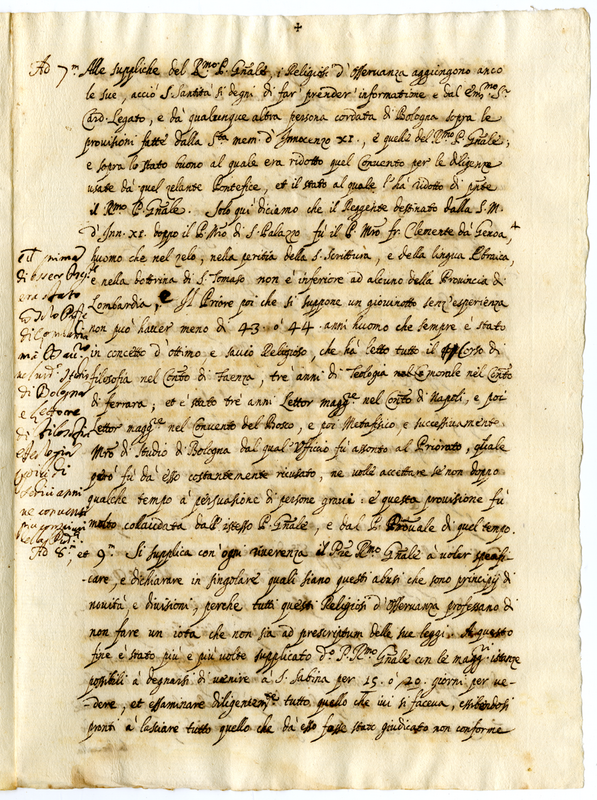 Ad 7.m Alle suppliche del R.mo P. Gñale, i Religiosi d'Osservanza aggiungono anco
le sue, acciò S. Santità si degni di far prender informatione e dal Em.mo S.r
Card. Legato, e da qualunque altra persona cordata di Bologna sopra le
provisioni fatte dalla S.ta mem. d'Innocenzo XI., e quelle del R.mo P. Gñale;
e sopra lo stato buono al quale era ridotto quel Convento per le diligenze
usate da quel zelante Pontefice, et il stato al quale l'ha ridotto di pñte
il R.mo P. Gñale. Solo quì diciamo che il Reggente destinato dalla S. M.
d'Inn. XI. doppo il P. Mro di S. Palazzo fù il P. Mro fr. Clemente da Genoa,
huomo che nel zelo, nella peritia della S. Scrittura, e della lingua Ebraica,
e nella dottrina di S. Tomaso non è inferiore ad alcuno della Provincia di
Lombardia, e Il Priore poi che si suppone un giovinotto senz'esperienza
non può haver meno di 43. ò 44. anni huomo che sempre è stato
in concetto d'ottimo e savio Religioso, che hà letto tutto il Corso di
filosofia nel Conto di Faenza, trè anni di Teologia morale nel Conto
di ferrara, et è stato trè anni Lettor magg.re nel Conto di Napoli, e poi
Lettor magg.re nel Convento del Bosco, e poi Metafisico e successivamente
Mro di Studio di Bologna dal qual'Ufficio fù assonto al Priorato, quale
però fù da esso costantemente ricusato, ne volle accettare se non doppo
qualche tempo à persuasione di persone gravi e questa provisione fù
molto collaudata dall'istesso P. Gñale, e dal P. Provale di quel tempo.
era stato
di Bologna
e Lettore
di filosofia
Ad 8.m et 9.m Si supplica con ogni riverenza il P.re R.mo Gñale à voler specifi-
-care, e dichiarare in singolare quali siano questi abusi che sono principij di
novità, e divisioni, perche tutti questi Religiosi d'Osservanza professano di
non fare un iota che non sia ad prescriptum delle sue leggi. A questo
fine è stato più e più volte supplicato d.o P. R.mo Gñale con le magg.ri istanze
possibili à degnarsi di venire à S. Sabina per 15. ò 20. giorni per ve-
-dere, et essaminare diligentem.te tutto quello che ivi si faceva, essibendosi
pronti à lasciare tutto quello che da esso fosse stato giudicato non conforme